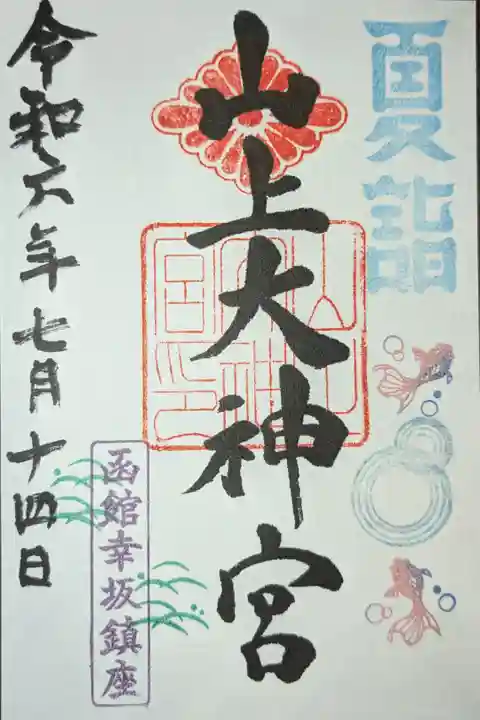 夏詣
山上大神宮
函館幸坂鎮座
令和六年七月十四日